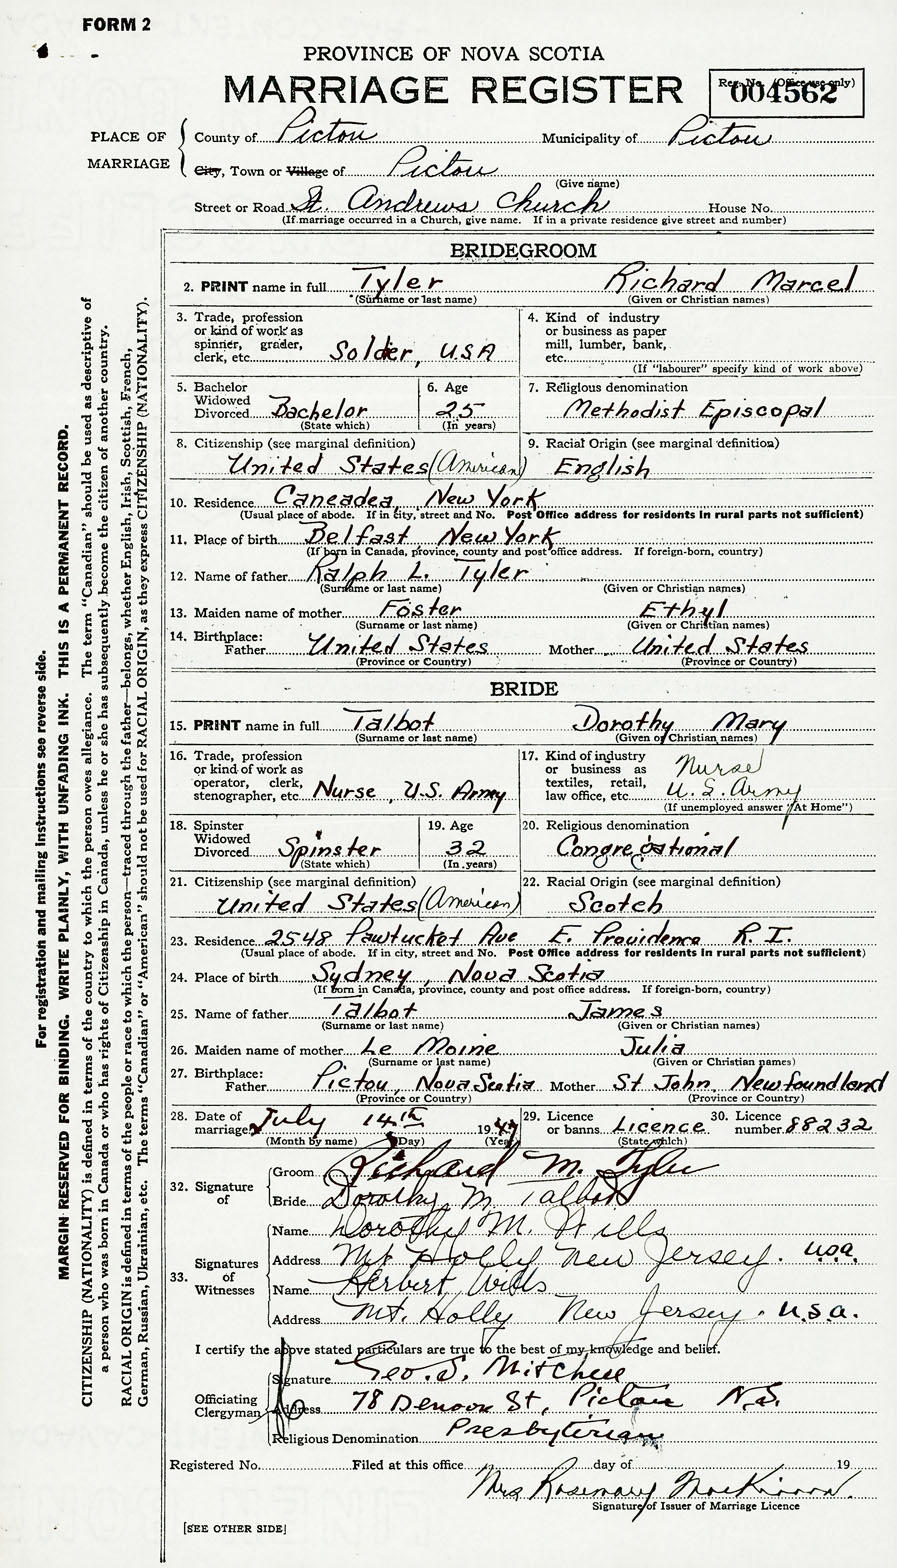 FORM 2
PROVINCE OF NOVA SCOTIA
MARRIAGE REGISTER
Reg. No. (Office use only)
004562
PLACE OF MARRIAGE
County of Pictou Municipality of Pictou
City, Town or Village of Pictou
(Give name)
Street or Road St. Andrews Church House No.
(If marriage occurred in a Church, give name. If in a private residence give street and number)
BRIDEGROOM
2. PRINT name in full Tyler Richard Marcel
(Surname or last name) (Given or Christian names)
3. Trade, profession or kind of work as spinner, grader, clerk, etc. Solder, USA
4. Kind of industry or business as paper mill, lumber, bank, etc.
(If "labourer" specify kind of work above)
5. Bachelor Widowed Divorced Bachelor
(State which)
6. Age 25
(In years)
7. Religious denomination
Methodist Episcopal
8. Citizenship (see marginal definition)
United States (American)
9. Racial Origin (see marginal definition)
English
10. Residence Caneadea, New York
(Usual place of abode. If in city, street and No. Post Office address for residents in rural parts not sufficient)
11. Place of birth Belfast New York
(If born in Canada, province, county and post office address. If foreign-born, country)
12. Name of father Ralph L. Tyler
(Surname or last name) (Given or Christian names)
13. Maiden name of mother Foster Ethyl
(Surname or last name) (Given or Christian names)
14. Birthplace:
Father United States Mother United States
(Province or Country) (Province or Country)
BRIDE
15. PRINT name in full Talbot Dorothy Mary
(Surname or last name) (Given or Christian names)
16. Trade, profession or kind of work as operator, clerk, stenographer, etc Nurse, U.S. Army
17. Kind of industry or business as textiles, retail, law office, etc. Nurse U.S. Army
(If unemployed answer "At Home")
18. Spinster Widowed Divorced Spinster
(State which)
19. Age 32
(In years)
20. Religious denomination
Congregational
21. Citizenship (see marginal definition)
United States (American)
22. Racial Origin (see marginal definition)
Scotch
23. Residence 2548 Pawtucket Ave E. Providence R.I.
(Usual place of abode. If in city, street and No. Post Office address for residents in rural parts not sufficient)
24. Place of birth Sydney, Nova Scotia
(If born in Canada, province, county and post office address. If foreign-born, country)
25. Name of father Talbot James
(Surname or last name) (Given or Christian names)
26. Maiden name of mother Le Moine Julia
(Surname or last name) (Given or Christian names)
27. Birthplace:
Father Pictou, Nova Scotia Mother St John, Newfoundland
(Province or Country) (Province or Country)
28. Date of marriage July 14th 1947
(Month by name) (Day) (Year)
29. Licence or banns Licence
(State which)
30. Licence number 88232
32. Signature of
Groom Richard M. Tyler
Bride Dorothy M. Talbot
33. Signatures of Witnesses
Name Dorothy M. Wills
Address Mt Holly New Jersey. USA.
Name Herbert Wills
Address Mt. Holly New Jersey. U.S.A.
I certify the above stated particulars are true to the best of my knowledge and belief.
Officiating Clergyman
Signature Geo. S. Mitchell
Address 78 Denoon St, Pictou N.S.
Religious Denomination Presbyterian
Registered No. Filed at this office day of 19
Mrs Rosemary MacKinnon.
Signature of Issuer of Marriage Licence
[SEE OTHER SIDE]
For registration and mailing instructions see reverse side.
MARGIN RESERVED FOR BINDING. WRITE PLAINLY, WITH UNFADING INK. THIS IS A PERMANENT RECORD.
CITIZENSHIP (NATIONALITY) is defined in terms of the country to which the person owes allegiance. The term "Canadian" should be used as descriptive of
a person who was born in Canada or who has rights of Citizenship in Canada, unless he or she has subsequently become the citizen of another country.
RACIAL ORIGIN is defined in terms of the people or race to which the person—traced through the father—belongs, whether English, Irish, Scottish, French,
German, Russian, Ukrainian, etc. The terms "Canadian" or "American" should not be used for RACIAL ORIGIN, as they express CITIZENSHIP (NATIONALITY).